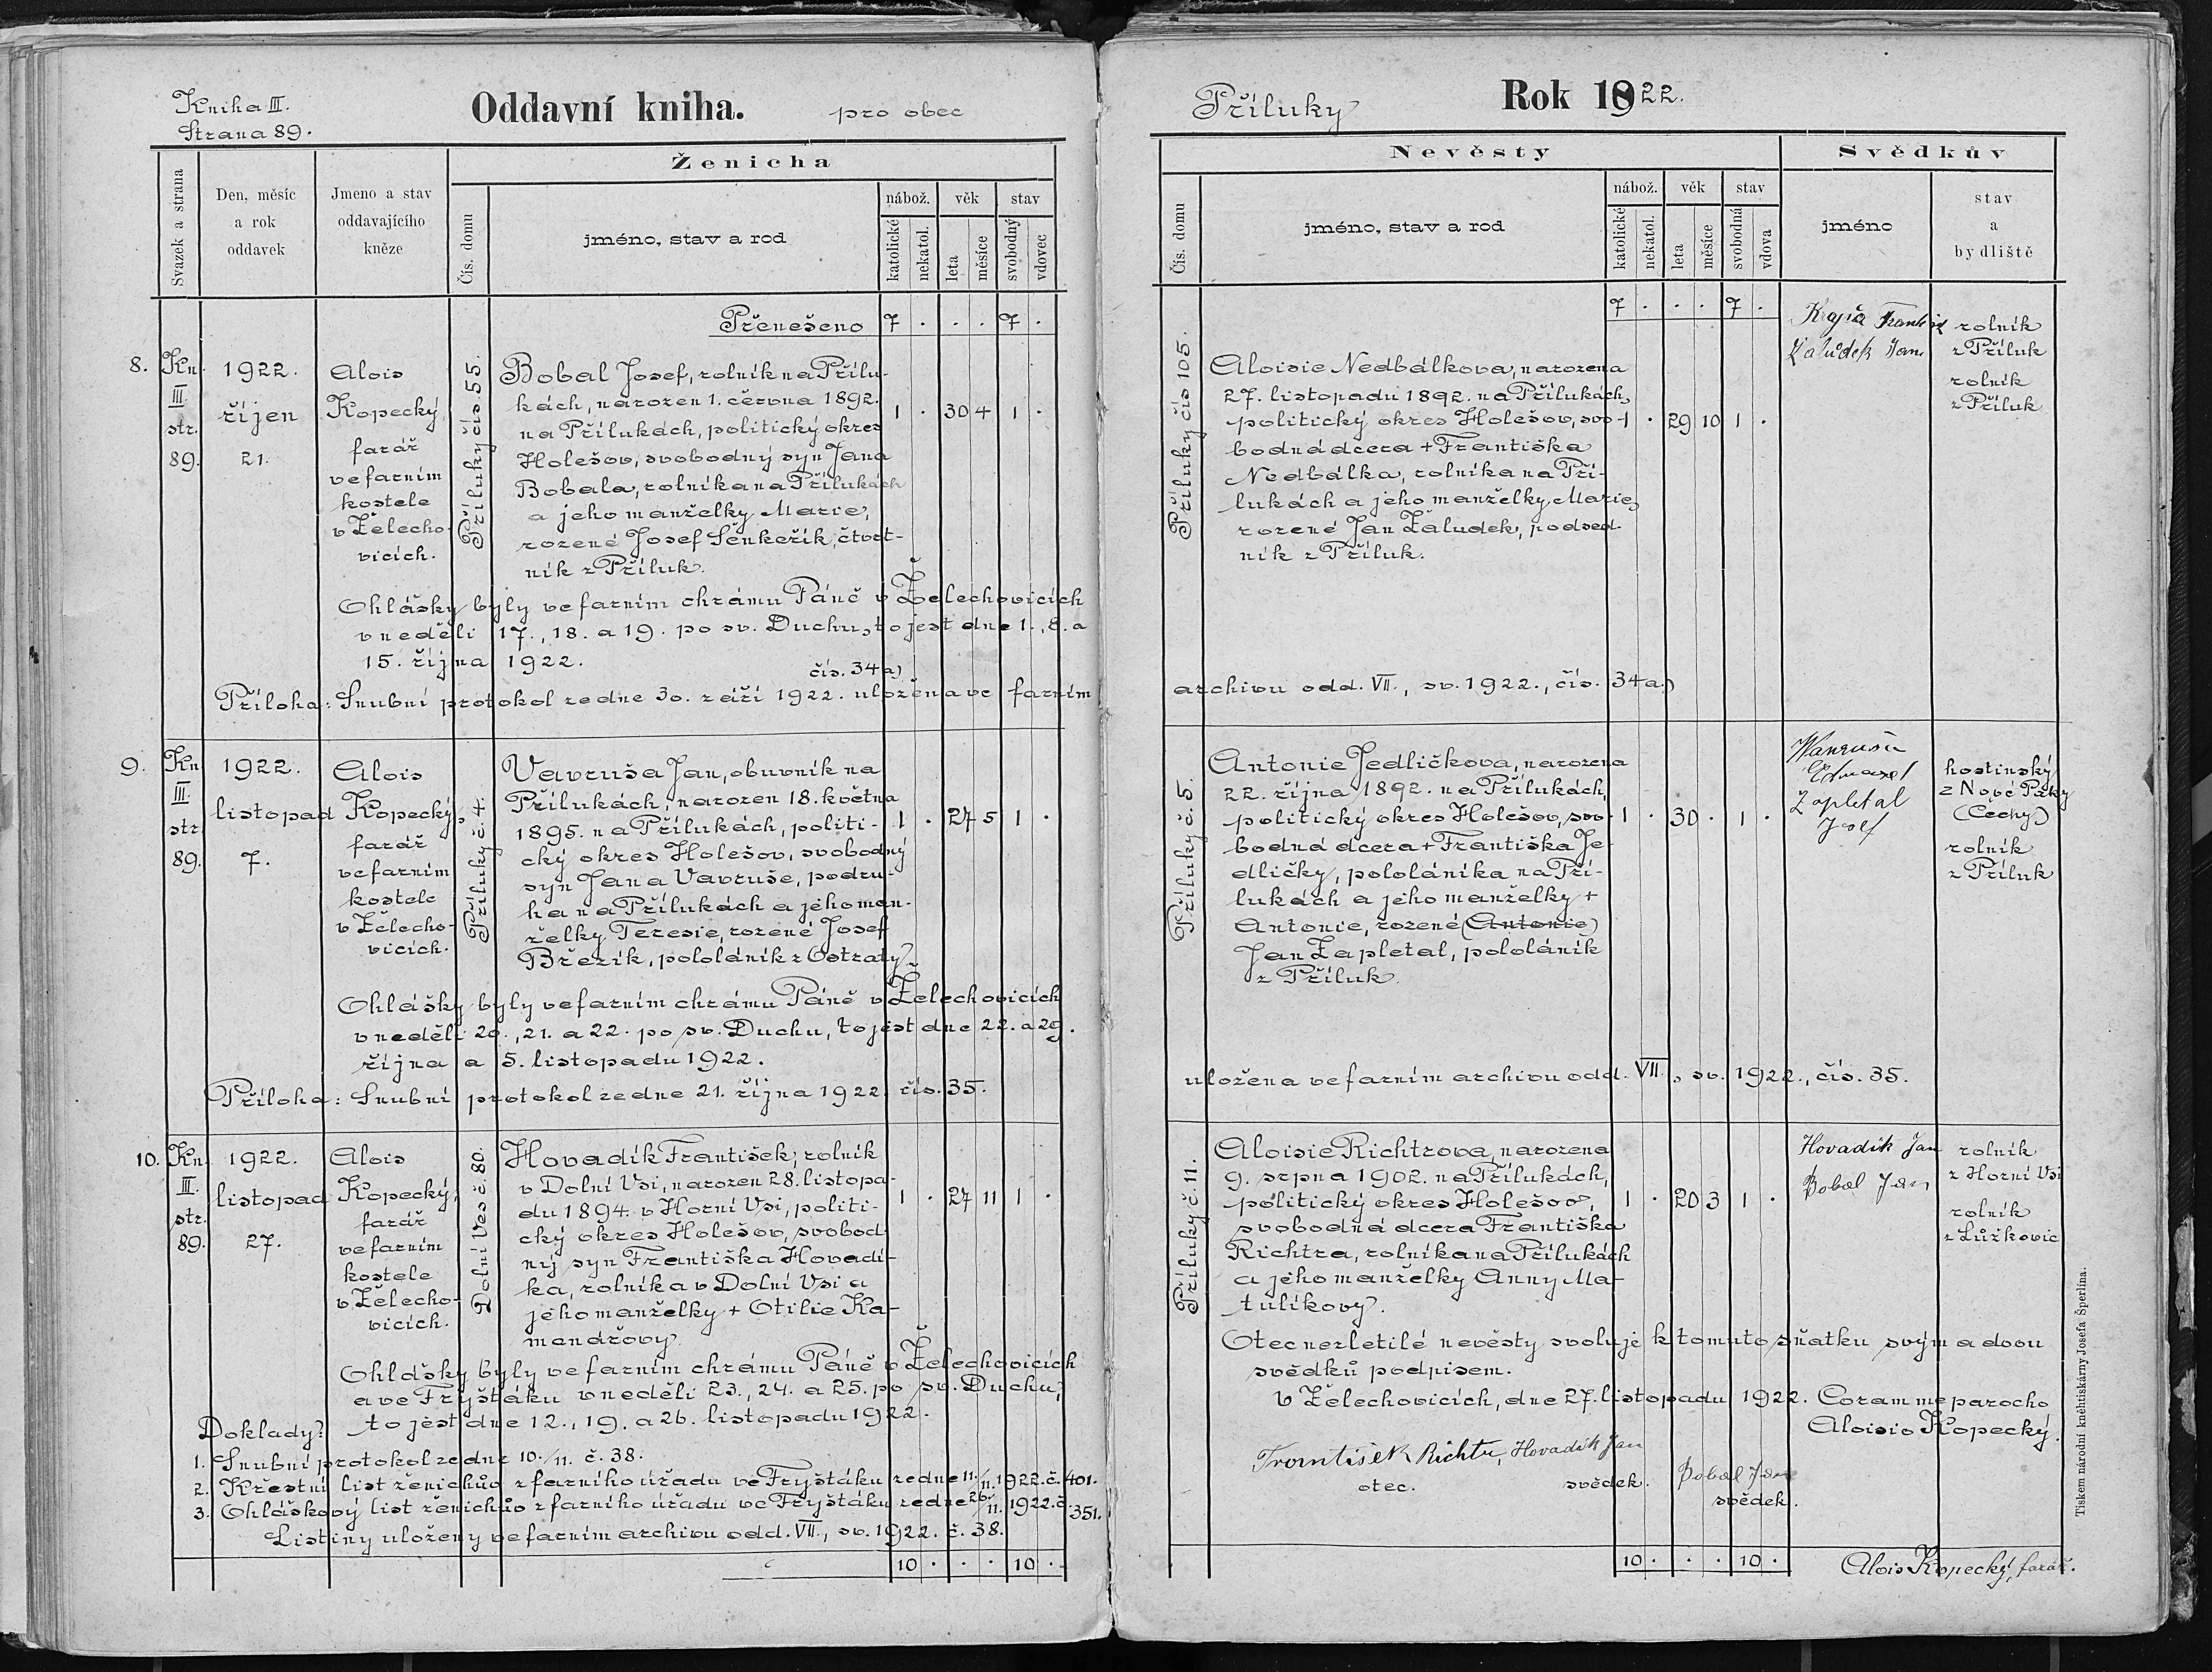 Kniha III.
Strana 89.
Oddavní kniha. pro obec
Svazek a strana
Den, měsíc
a rok
oddavek
Jmeno a stav
oddavajícího
kněze
Ženicha
Čís. domu
jméno, stav a rod
nábož.
věk
stav
katolické
nekatol.
leta
měsíce
svobodný
vdovec
Přenešeno 7 . . . 7 .
8. Kn.
III.
str.
89.
1922.
říjen
21.
Alois
Kopecký,
farář
ve farním
kostele
v Želecho-
vicích.
Příluky čís. 55.
Bobal Josef, rolník na Přílu-
kách, narozen 1. června 1892.
na Přílukách, politický okres
Holešov, svobodný syn Jana
Bobala, rolníka na Přílukách
a jeho manželky Marie,
rozené Josef Šenkeřík, čtvrt-
ník z Příluk.
1 . 30 4 1 .
Ohlášky byly ve farním chrámu Páně v Želechovicích
v neděli 17., 18. a 19. po sv. Duchu, to jest dne 1., 8. a
15. října 1922.
čís. 34 a)
Příloha: Snubní protokol ze dne 30. září 1922. uložena ve farním
9. Kn
III.
str.
89.
1922.
listopad
7.
Alois
Kopecký,
farář
ve farním
kostele
v Želecho-
vicích.
Příluky č. 4.
Vavruša Jan, obuvník na
Přílukách, narozen 18. května
1895. na Přílukách, politi-
cký okres Holešov, svobodný
syn Jana Vavruše, podru-
ha na Přílukách a jeho man-
želky Teresie, rozené Josef
Březík, pololáník z Ostraty.
1 . 27 5 1 .
Ohlášky byly ve farním chrámu Páně v Želechovicích
v neděli 20., 21. a 22. po sv. Duchu, to jest dne 22. a 29.
října a 5. listopadu 1922.
Příloha: Snubní protokol ze dne 21. října 1922. čís. 35.
10. Kn.
III.
str.
89.
1922.
listopad
27.
Alois
Kopecký,
farář
ve farním
kostele
v Želecho-
vicích.
Dolní Ves č. 80.
Hovadík František, rolník
v Dolní Vsi, narozen 28. listopa-
du 1894. v Horní Vsi, politi-
cký okres Holešov, svobod-
ný syn Františka Hovadí-
ka, rolníka v Dolní Vsi a
jeho manželky + Otilie Ka-
menářovy.
1 . 27 11 1 .
Ohlášky byly ve farním chrámu Páně v Želechovicích
a ve Fryštáku v neděli 23., 24. a 25. po sv. Duchu,
to jest dne 12., 19. a 26. listopadu 1922.
Doklady:
1. Snubní protokol ze dne 10./11. č. 38.
2. Křestní list ženichův z farního úřadu ve Fryštáku ze dne 11./11. 1922. č. 401.
3. Ohláškový list ženichův z farního úřadu ve Fryštáku ze dne 26./11. 1922. č. 351.
Listiny uloženy ve farním archivu odd. VII., sv. 1922. č. 38.
10 . . . 10 .
Příluky
Rok 1922.
Nevěsty
Svědkův
Čís. domu
jméno, stav a rod
nábož.
věk
stav
katolické
nekatol.
leta
měsíce
svobodná
vdova
jméno
stav
a
bydliště
7 . . . 7 .
Příluky čís 105.
Aloisie Nedbálkova, narozena
27. listopadu 1892. na Přílukách,
politický okres Holešov, svo-
bodná dcera + Františka
Nedbálka, rolníka na Pří-
lukách a jeho manželky Marie,
rozené Jan Žaludek, podsed-
ník z Příluk.
1 . 29 10 1 .
Žalúdek Jan
rolník
z Příluk
rolník
z Příluk
archivu odd. VII., sv. 1922., čís. 34 a.)
Příluky č. 5.
Antonie Jedličkova, narozena
22. října 1892. na Přílukách,
politický okres Holešov, svo-
bodná dcera + Františka Je-
dličky, pololáníka na Pří-
lukách a jeho manželky +
Antonie, rozené (Antonie)
Jan Zapletal, pololáník
z Příluk.
1 . 30 . 1 .
Zapletal
Josef
hostinský
z Nové Paky
(Čechy)
rolník
z Příluk
uložena ve farním archivu odd. VII., sv. 1922., čís. 35.
Příluky č. 11.
Aloisie Richtrova, narozena
9. srpna 1902. na Přílukách,
politický okres Holešov,
svobodná dcera Františka
Richtra, rolníka na Přílukách
a jeho manželky Anny Ma-
tulíkovy.
1 . 20 3 1 .
Hovadík Jan
Bobal Jan
rolník
z Horní Vsi
rolník
z Lůžkovic
Otec nezletilé nevěsty svoluje k tomuto sňatku svým a dvou
svědků podpisem.
V Želechovicích, dne 27. listopadu 1922. Coram me parocho
Aloisio Kopecký.
František Richtr, Hovadík Jan
otec. svědek. Bobal Jan
svědek.
10 . . . 10 .
Alois Kopecký, farář.
Tiskem národní knihtiskárny Josefa Šperlína.